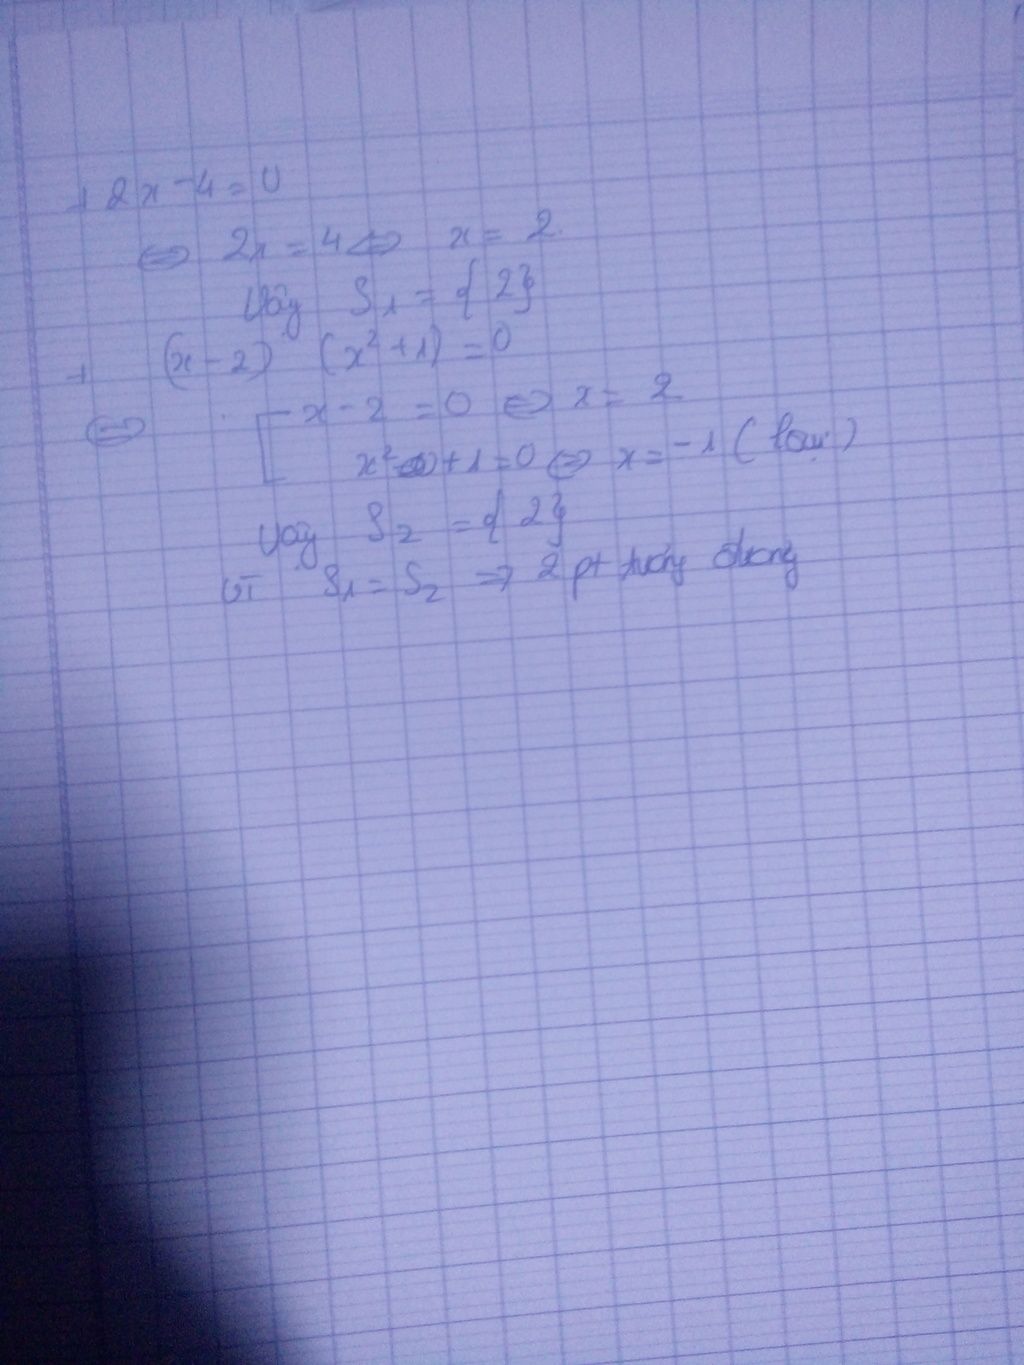 + 2x - 4 = 0
⇔ 2x = 4 ⇔ x = 2.
Vậy S₁ = {2}
+ (x - 2) (x² + 1) = 0
⇔ [ x - 2 = 0 ⇔ x = 2
x² + 1 = 0 ⇔ x = -1 (loại)
Vậy S₂ = {2}
Vì S₁ = S₂ ⇒ 2 pt tương đương